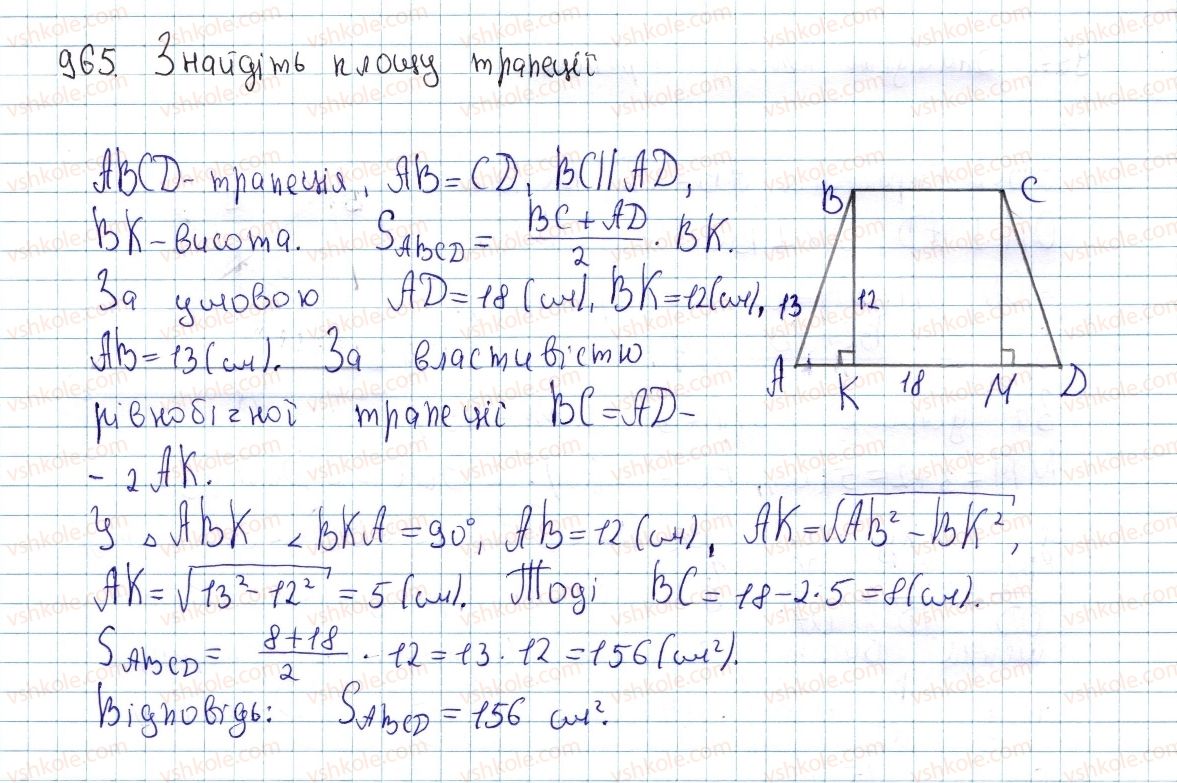 965. Знайдіть площу трапеції
ABCD - трапеція, AB = CD, BC || AD,
BK - висота. S_ABCD = (BC + AD)/2 · BK.
За умовою AD = 18 (см), BK = 12 (см),
AB = 13 (см). За властивістю
рівнобічної трапеції BC = AD -
- 2 AK.
У △ ABK ∠ BKA = 90°, AB = 12 (см), AK = √(AB² - BK²),
AK = √(13² - 12²) = 5 (см). Тоді BC = 18 - 2 · 5 = 8 (см).
S_ABCD = (8 + 18)/2 · 12 = 13 · 12 = 156 (см²).
Відповідь: S_ABCD = 156 см².
B C
13 12
A K 18 M D
vshkole.com